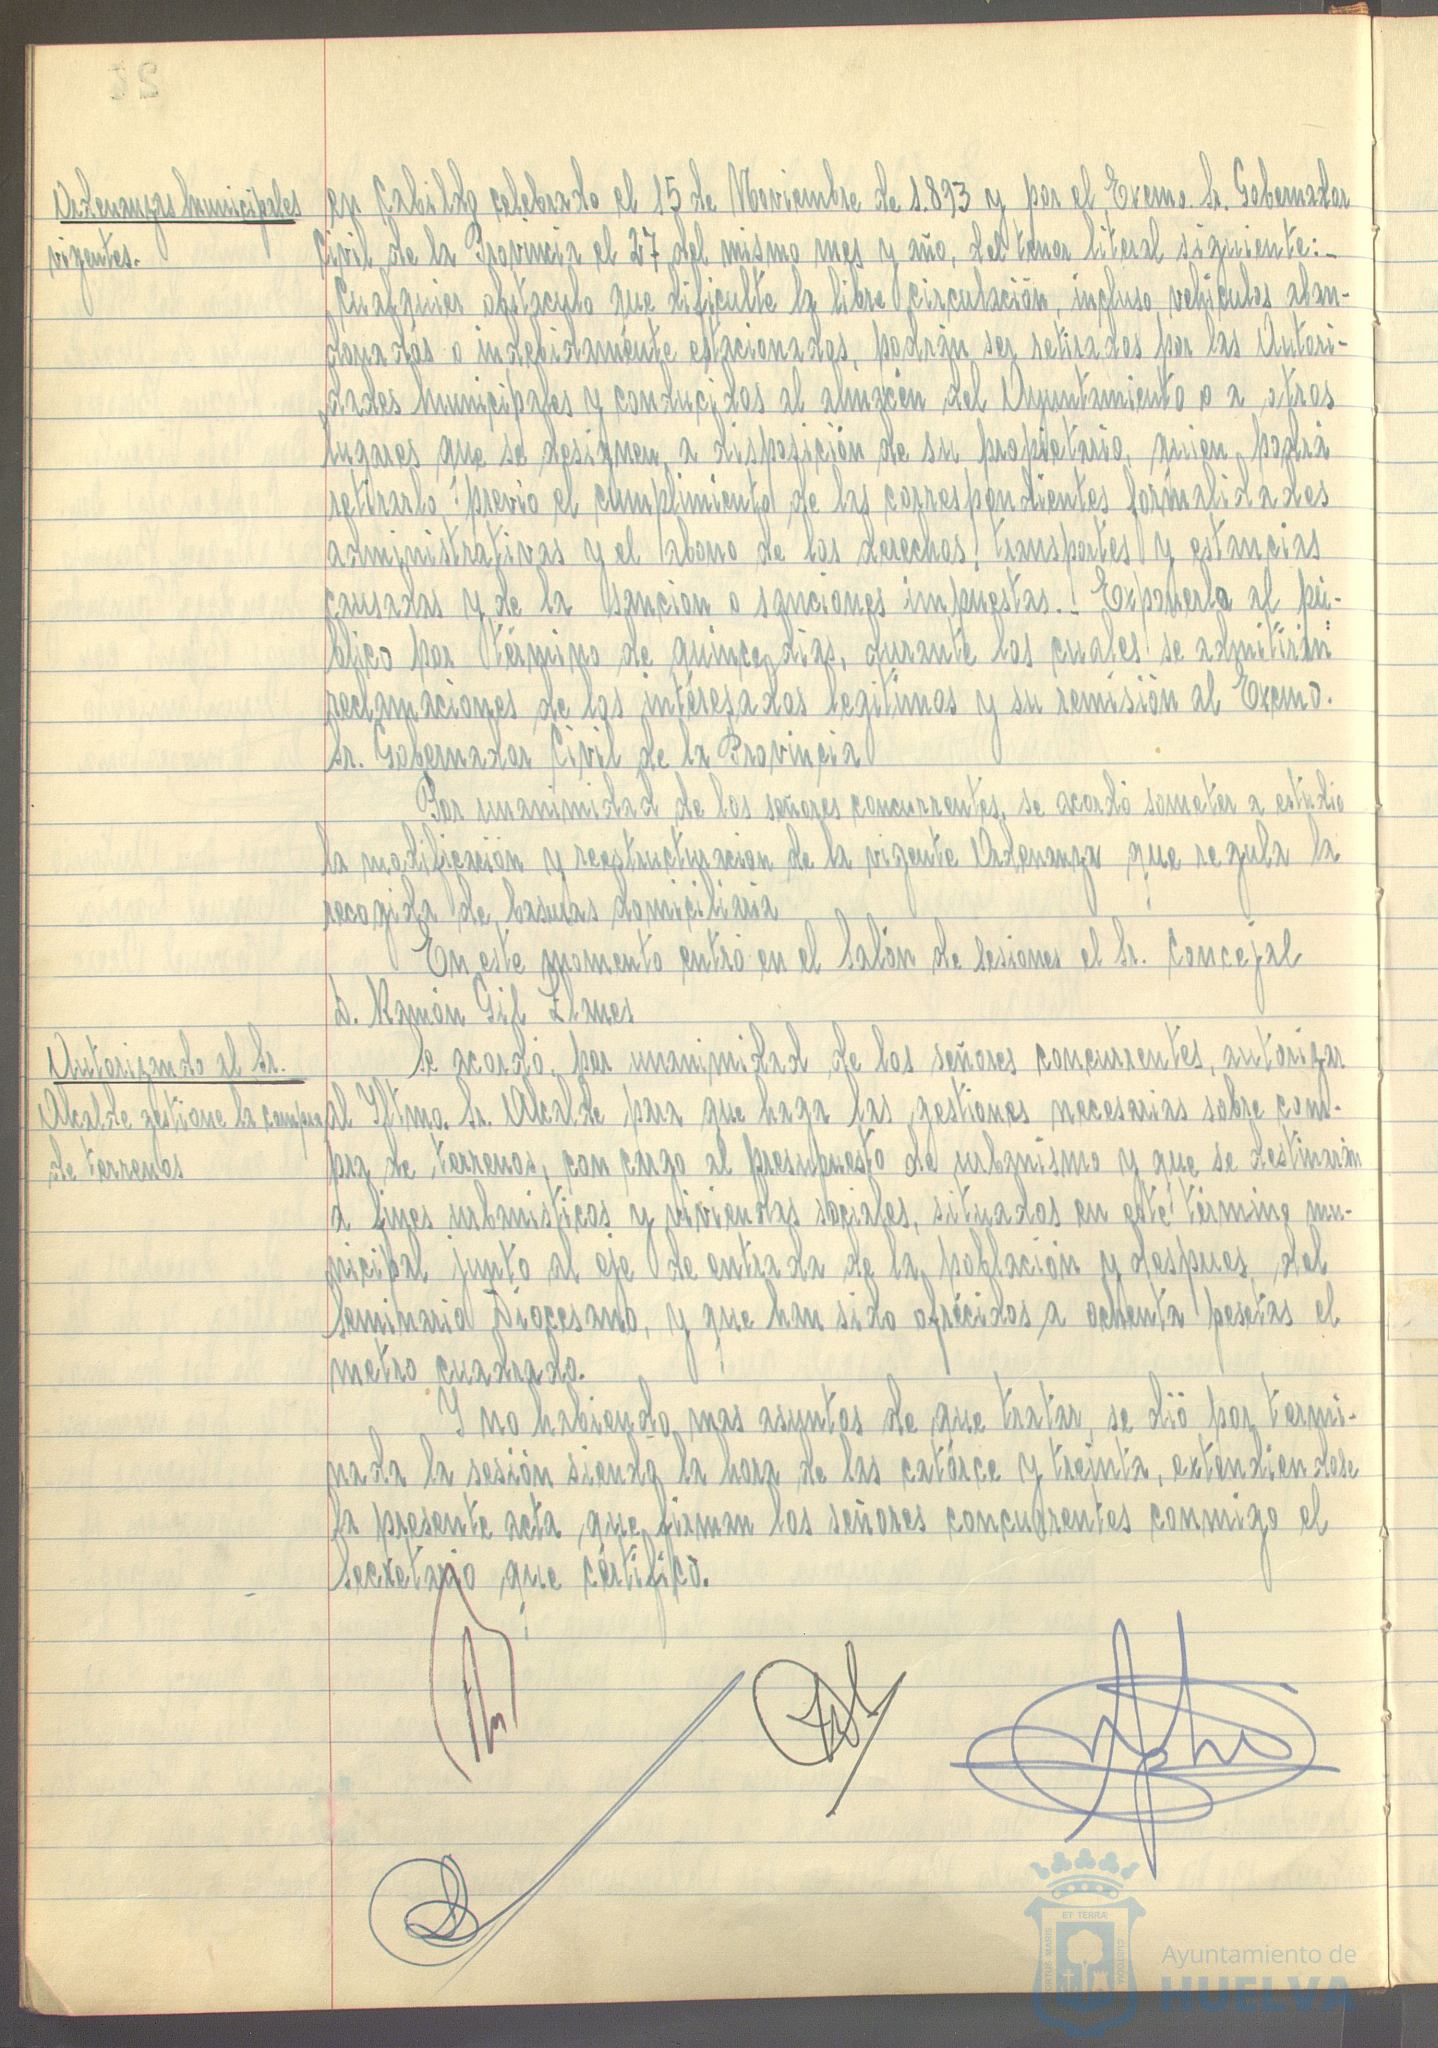 Ordenanzas Municipales
vigentes.
en Cabildo celebrado el 15 de Noviembre de 1.893 y por el Excmo. Sr. Gobernador
Civil de la Provincia el 27 del mismo mes y año, del tenor literal siguiente:-
Cualquier obstaculo que dificulte la libre circulación, incluso vehiculos aban-
donados o indebidamente estacionados, podrán ser retirados por las Autori-
dades Municipales y conducidos al almacén del Ayuntamiento o a otros
lugares que se designen, a disposición de su propietario, quien podrá
retirarlo previo el cumplimiento de las correspondientes formalidades
administrativas y el abono de los derechos, transportes y estancias
causadas y de la sanción o sanciones impuestas. Exponerla al pú-
blico por término de quince dias, durante los cuales se admitirán
reclamaciones de los interesados legitimos y su remisión al Excmo.
Sr. Gobernador Civil de la Provincia
Por unanimidad de los señores concurrentes, se acordó someter a estudio
la modificación y reestructuracion de la vigente Ordenanza que regula la
recogida de basuras domiciliaria
En este momento entró en el Salón de Sesiones el Sr. Concejal
D. Ramón Gil Llanes
Autorizando al Sr.
Alcalde gestione la compra
de terrenos
Se acordó, por unanimidad de los señores concurrentes, autorizar
al Iltmo. Sr. Alcalde para que haga las gestiones necesarias sobre com-
pra de terrenos, con cargo al presupuesto de urbanismo y que se destinarán
a fines urbanisticos y viviendas sociales, situados en este término mu-
nicipal junto al eje de entrada de la población y despues del
Seminario Diocesano, y que han sido ofrécidos a ochenta pesetas el
metro cuadrado.
Y no habiendo mas asuntos de que tratar, se dió por termi-
nada la sesión siendo la hora de las catorce y treinta, extendiendose
la presente acta que firman los señores concurrentes conmigo el
Secretario que certifico.
ET TERRA
PORTUS MARIS
CUSTODIA
Ayuntamiento de
HUELVA